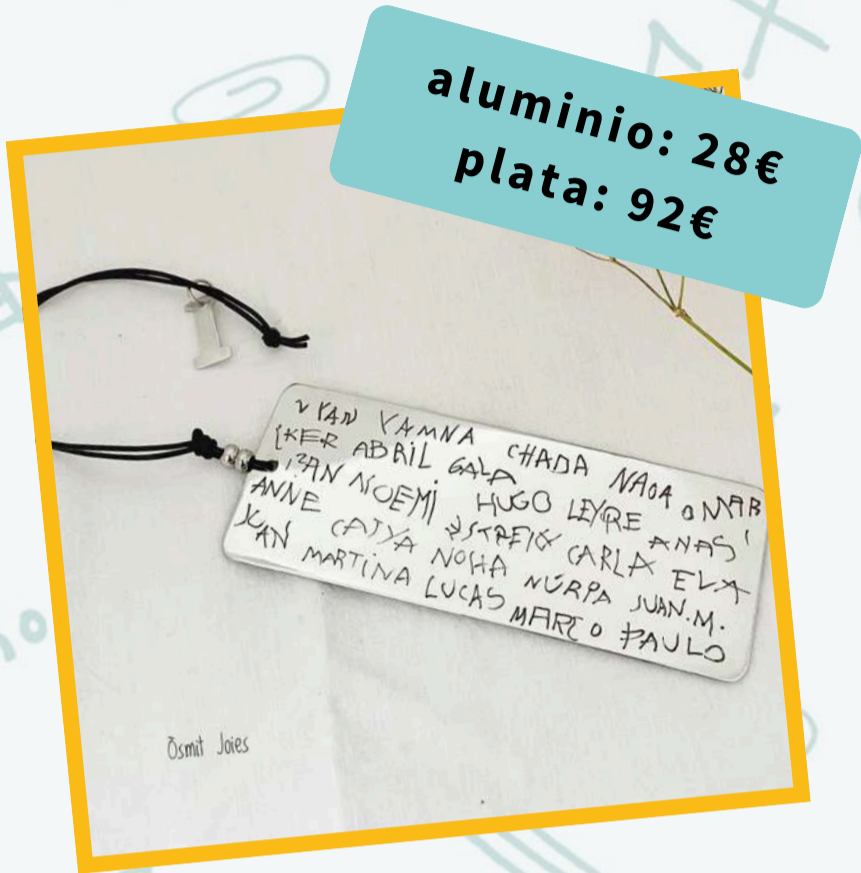 aluminio: 28€
plata: 92€
YAN YAMNA CHADA NADA OMAR
IKER ABRIL GALA
IZAN NOEMI HUGO LEYRE ANAS
ANNE CATYA CARLA EVA
JUAN MARTINA NOHA JUAN.M.
LUCAS MARCO PAULO
Osmit Joies